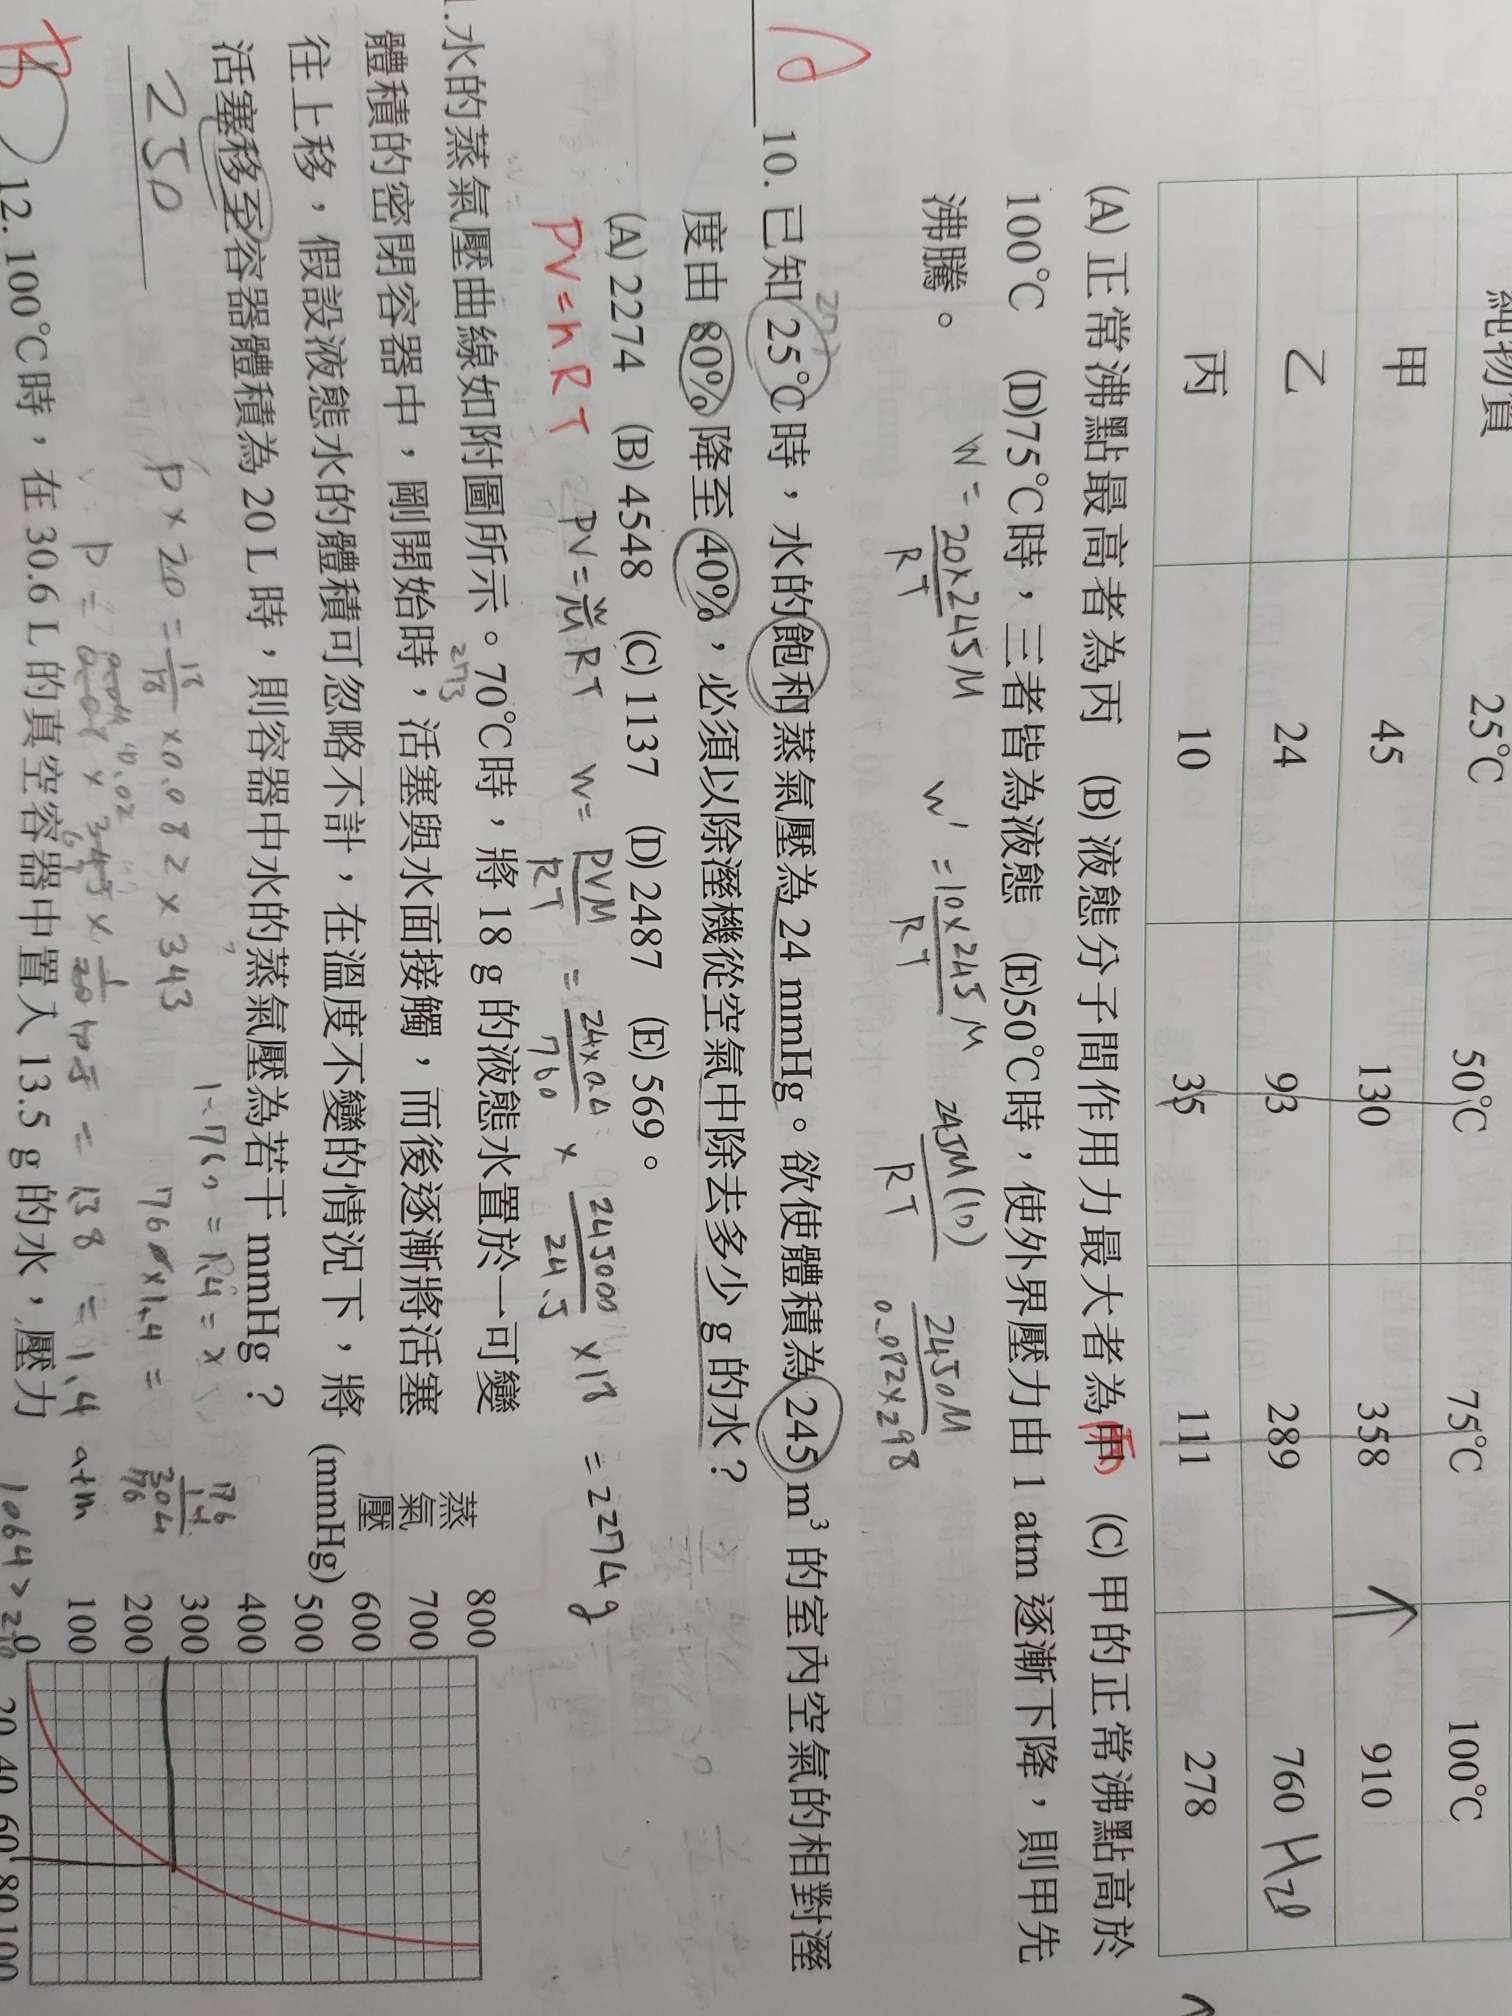 純物質 25℃ 50℃ 75℃ 100℃
甲 45 130 358 910
乙 24 93 289 760 H₂O
丙 10 35 111 278
(A) 正常沸點最高者為丙 (B) 液態分子間作用力最大者為甲 (C) 甲的正常沸點高於
100℃ (D)75℃時，三者皆為液態 (E)50℃時，使外界壓力由 1 atm 逐漸下降，則甲先
沸騰。
W = 20×245M / RT
W' = 10×245M / RT
245M(10) / RT
2450M / 0.082×298
10. 已知 25℃時，水的飽和蒸氣壓為 24 mmHg。欲使體積為 245 m³ 的室內空氣的相對溼
度由 80%降至 40%，必須以除溼機從空氣中除去多少 g 的水？
(A) 2274 (B) 4548 (C) 1137 (D) 2487 (E) 569。
PV=nRT
PV = W/M RT
W = PVM / RT
= 24×0.4 / 760 × 245000 / 24.5 ×18 = 2274g
.水的蒸氣壓曲線如附圖所示。70℃時，將 18 g 的液態水置於一可變
273
體積的密閉容器中，剛開始時，活塞與水面接觸，而後逐漸將活塞
往上移，假設液態水的體積可忽略不計，在溫度不變的情況下，將
活塞移至容器體積為 20 L 時，則容器中水的蒸氣壓為若干 mmHg？
250
P×20 = 18/18 ×0.082×343
= 1.4 atm
760×1.4 =
蒸氣壓
(mmHg)
800
700
600
500
400
300
200
100
0
20 40 60 80 100
12. 100℃時，在 30.6 L 的真空容器中置入 13.5 g 的水，壓力